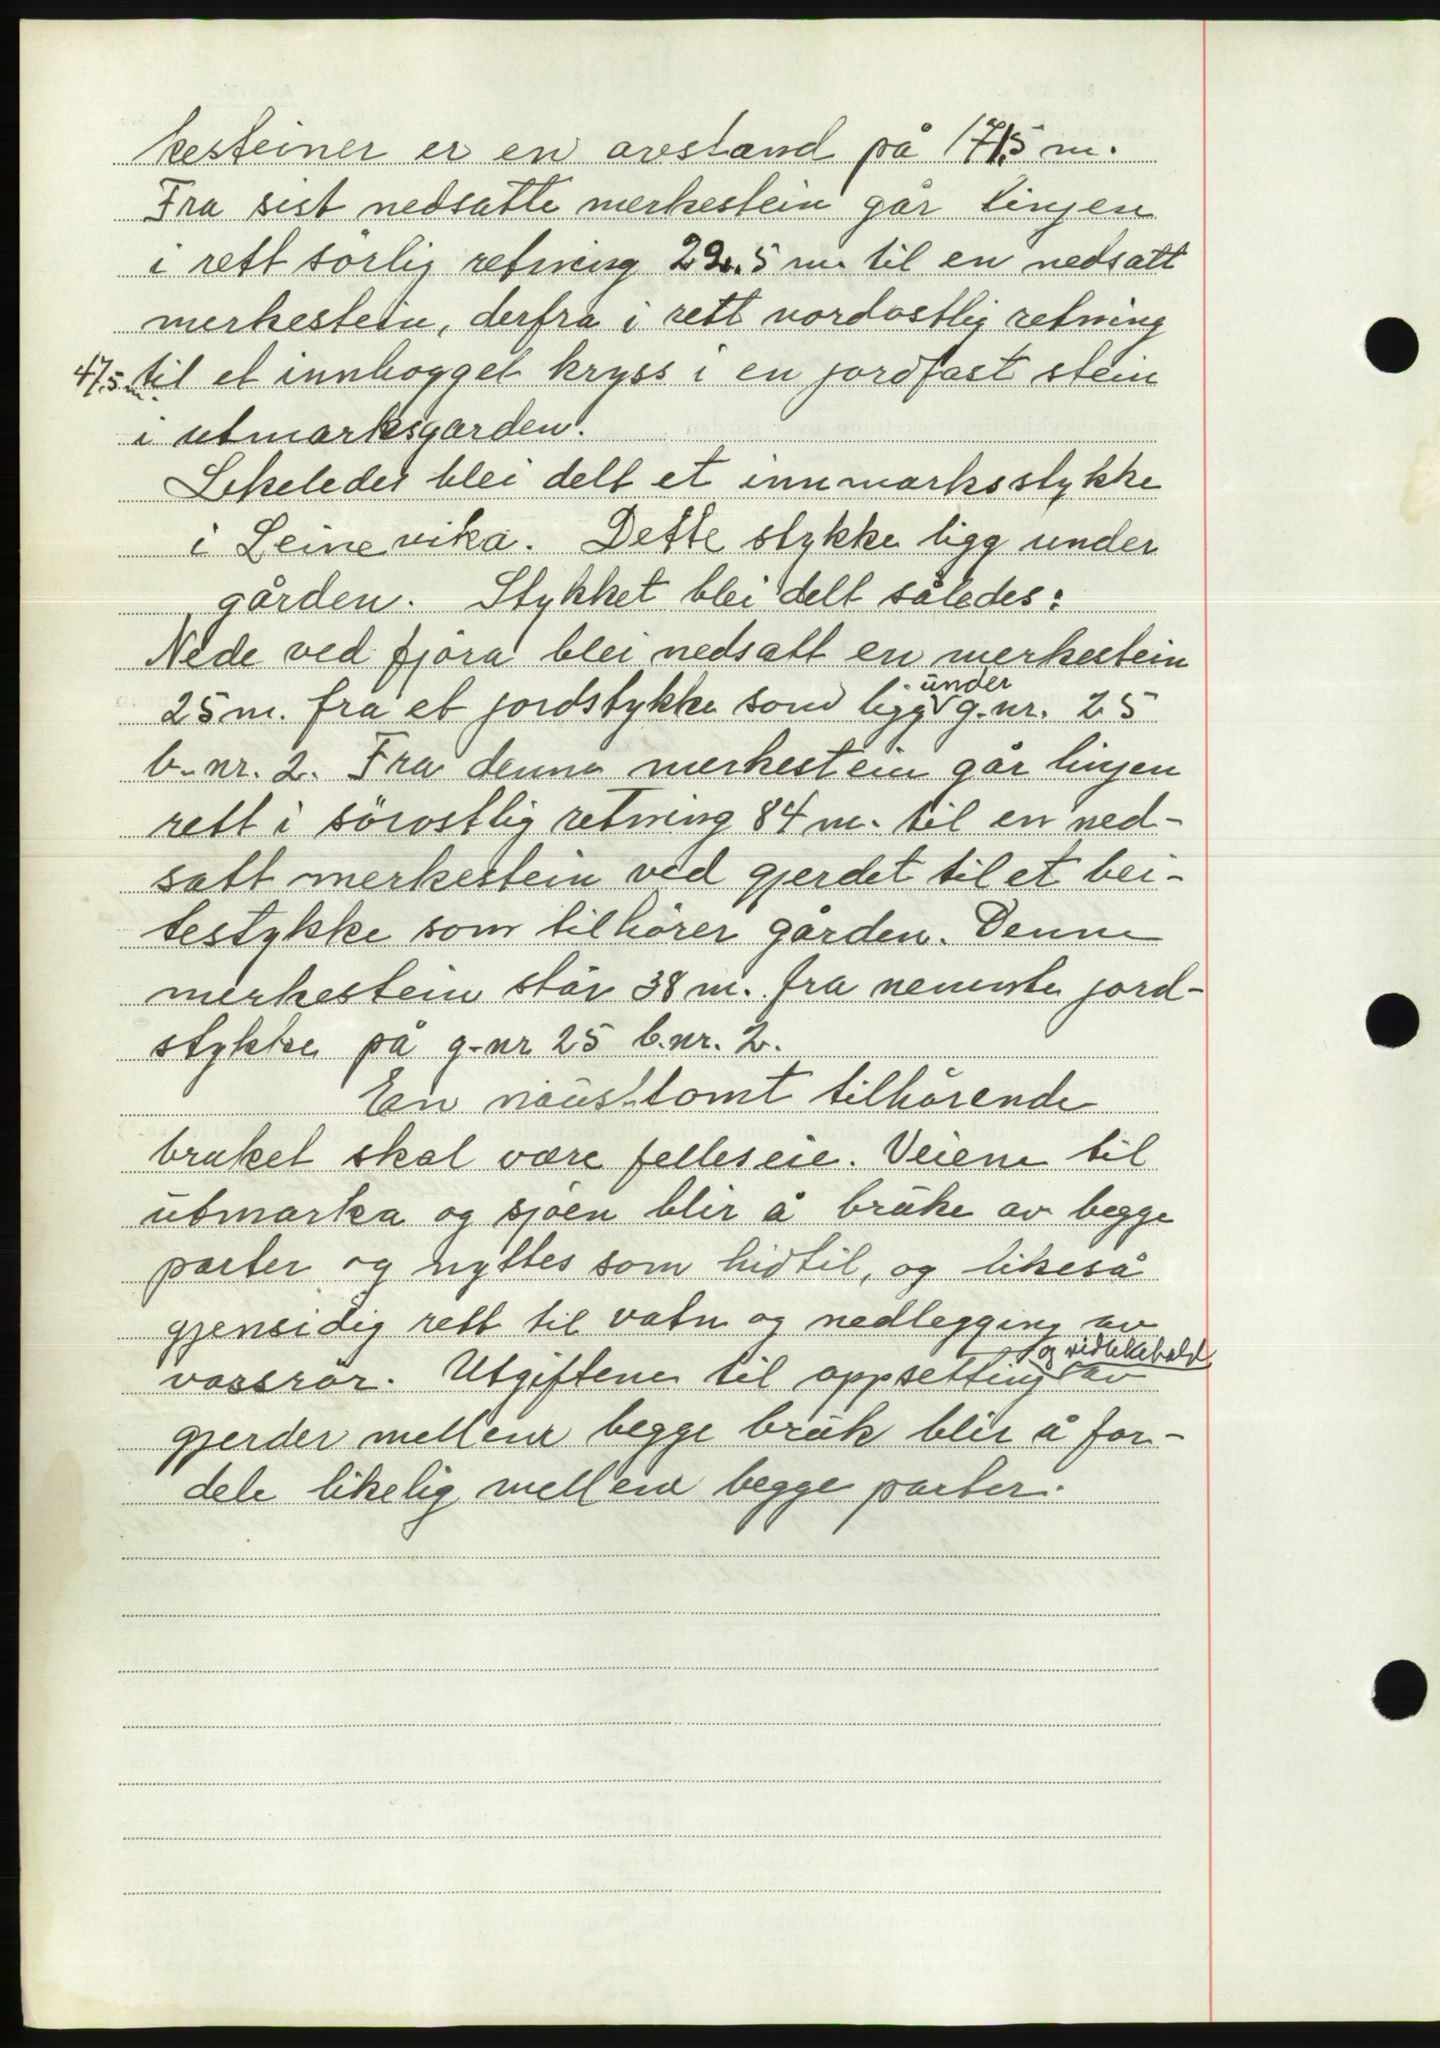 kesteiner er en avstand på 171,5 m.
Fra sist nedsatte merkestein går linjen
i rett sörlig retning 22.5 m. til en nedsatt
merkestein, derfra i rett nordostlig retning
47,5 m. til et innhogget kryss i en jordfast stein
i utmarksgarden.
Likeledes blei delt et innmarksstykke
i Leinevika. Dette stykke ligg under
gården. Stykket blei delt således:
Nede ved fjöra blei nedsatt en merkestein
25 m. fra et jordstykke som ligg under g.nr. 25
b.nr. 2. Fra denne merkestein går linjen
rett i sörostlig retning 84 m. til en ned-
satt merkestein ved gjerdet til et bei-
testykke som tilhörer gården. Denne
merkestein står 38 m. fra nemnte jord-
stykke på g.nr 25 b.nr. 2.
En nausttomt tilhörende
bruket skal være felleseie. Veiene til
utmarka og sjöen blir å bruke av begge
parter og nyttes som hidtil, og likeså
gjensidig rett til vatn og nedlegging av
vassrör. Utgiftene til oppsetting og vidlikehold av
gjerder mellem begge bruk blir å for-
dele likelig mellem begge parter.